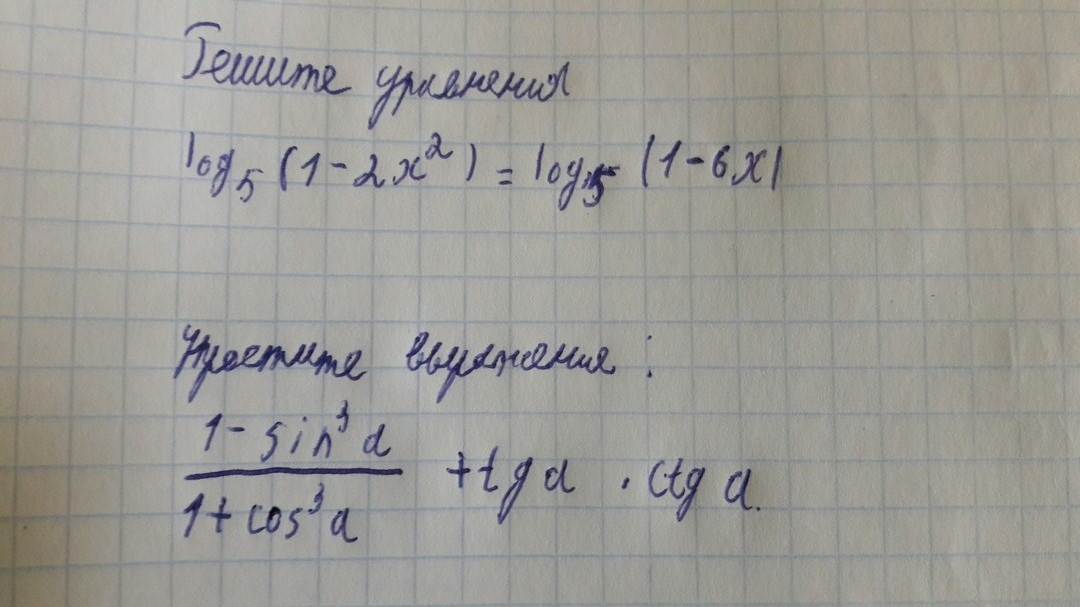 Решите уравнения
log₅ (1-2x²) = log₅ (1-6x)
Упростите выражения:
1- sin³ α
1+ cos³ α
+tg α · ctg α.